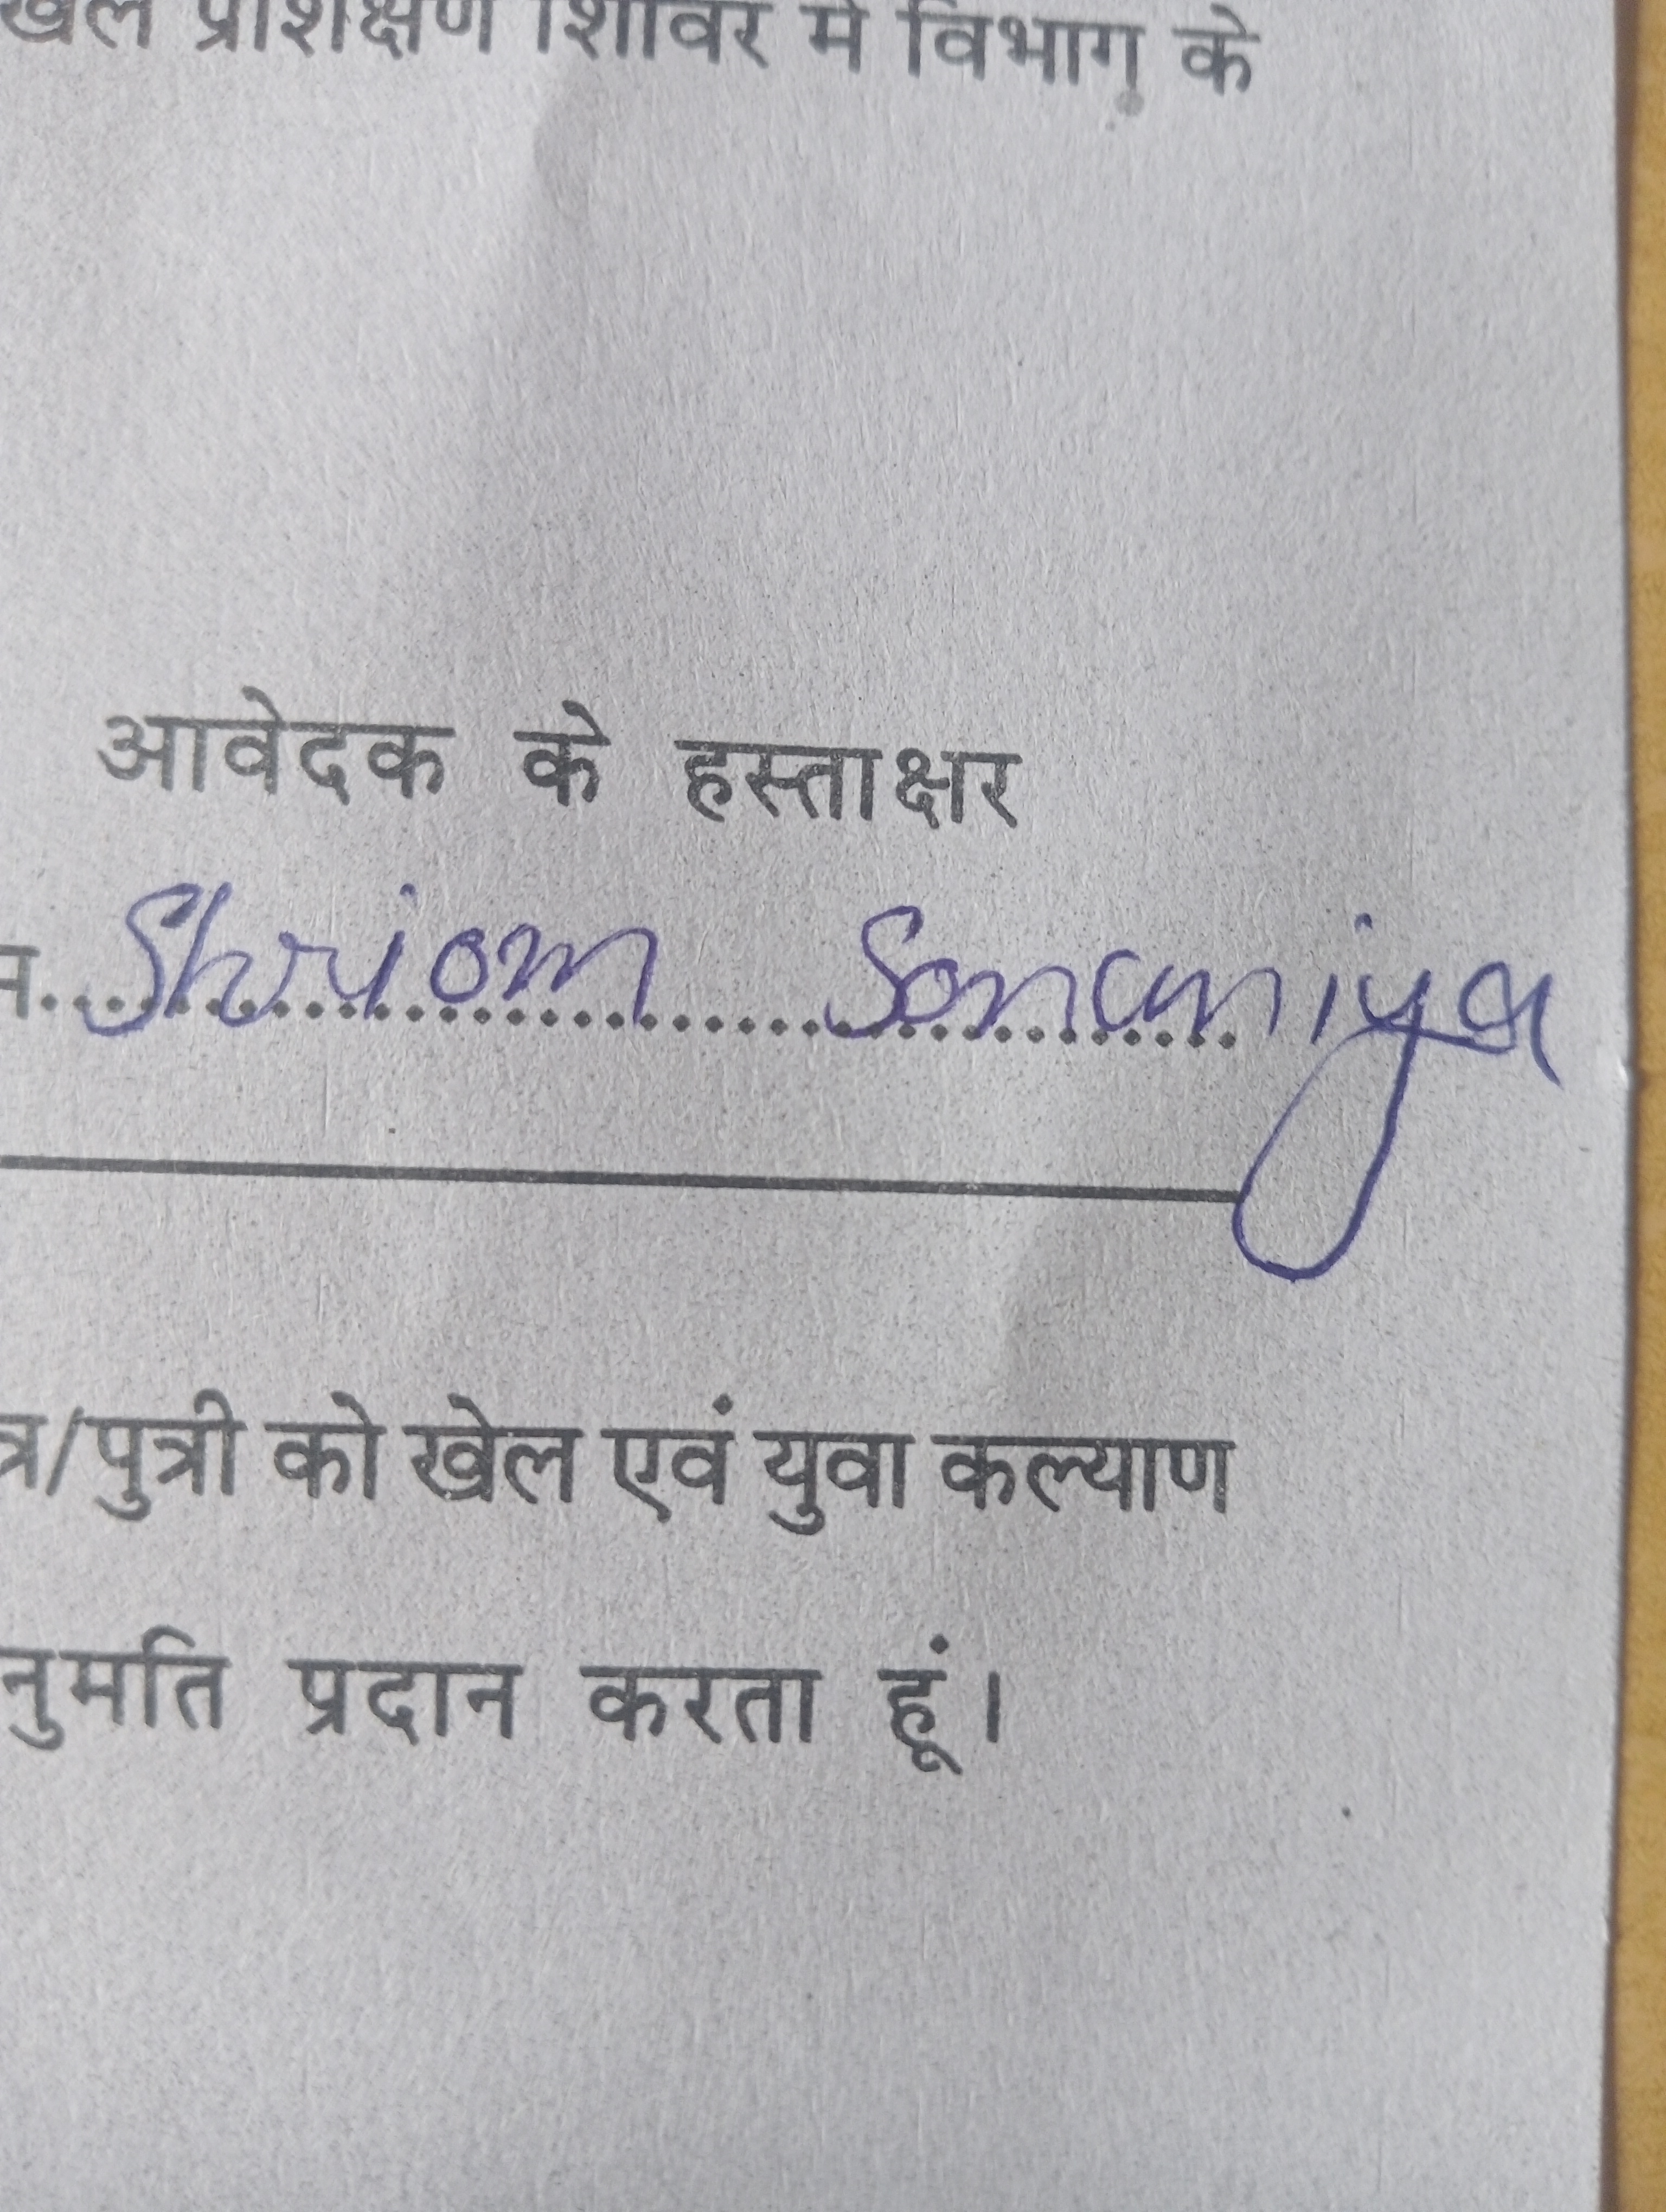 खेल प्रशिक्षण शिविर में विभाग के
आवेदक के हस्ताक्षर
म.......... Shriom Sonaniya
त्र/पुत्री को खेल एवं युवा कल्याण
नुमति प्रदान करता हूं।